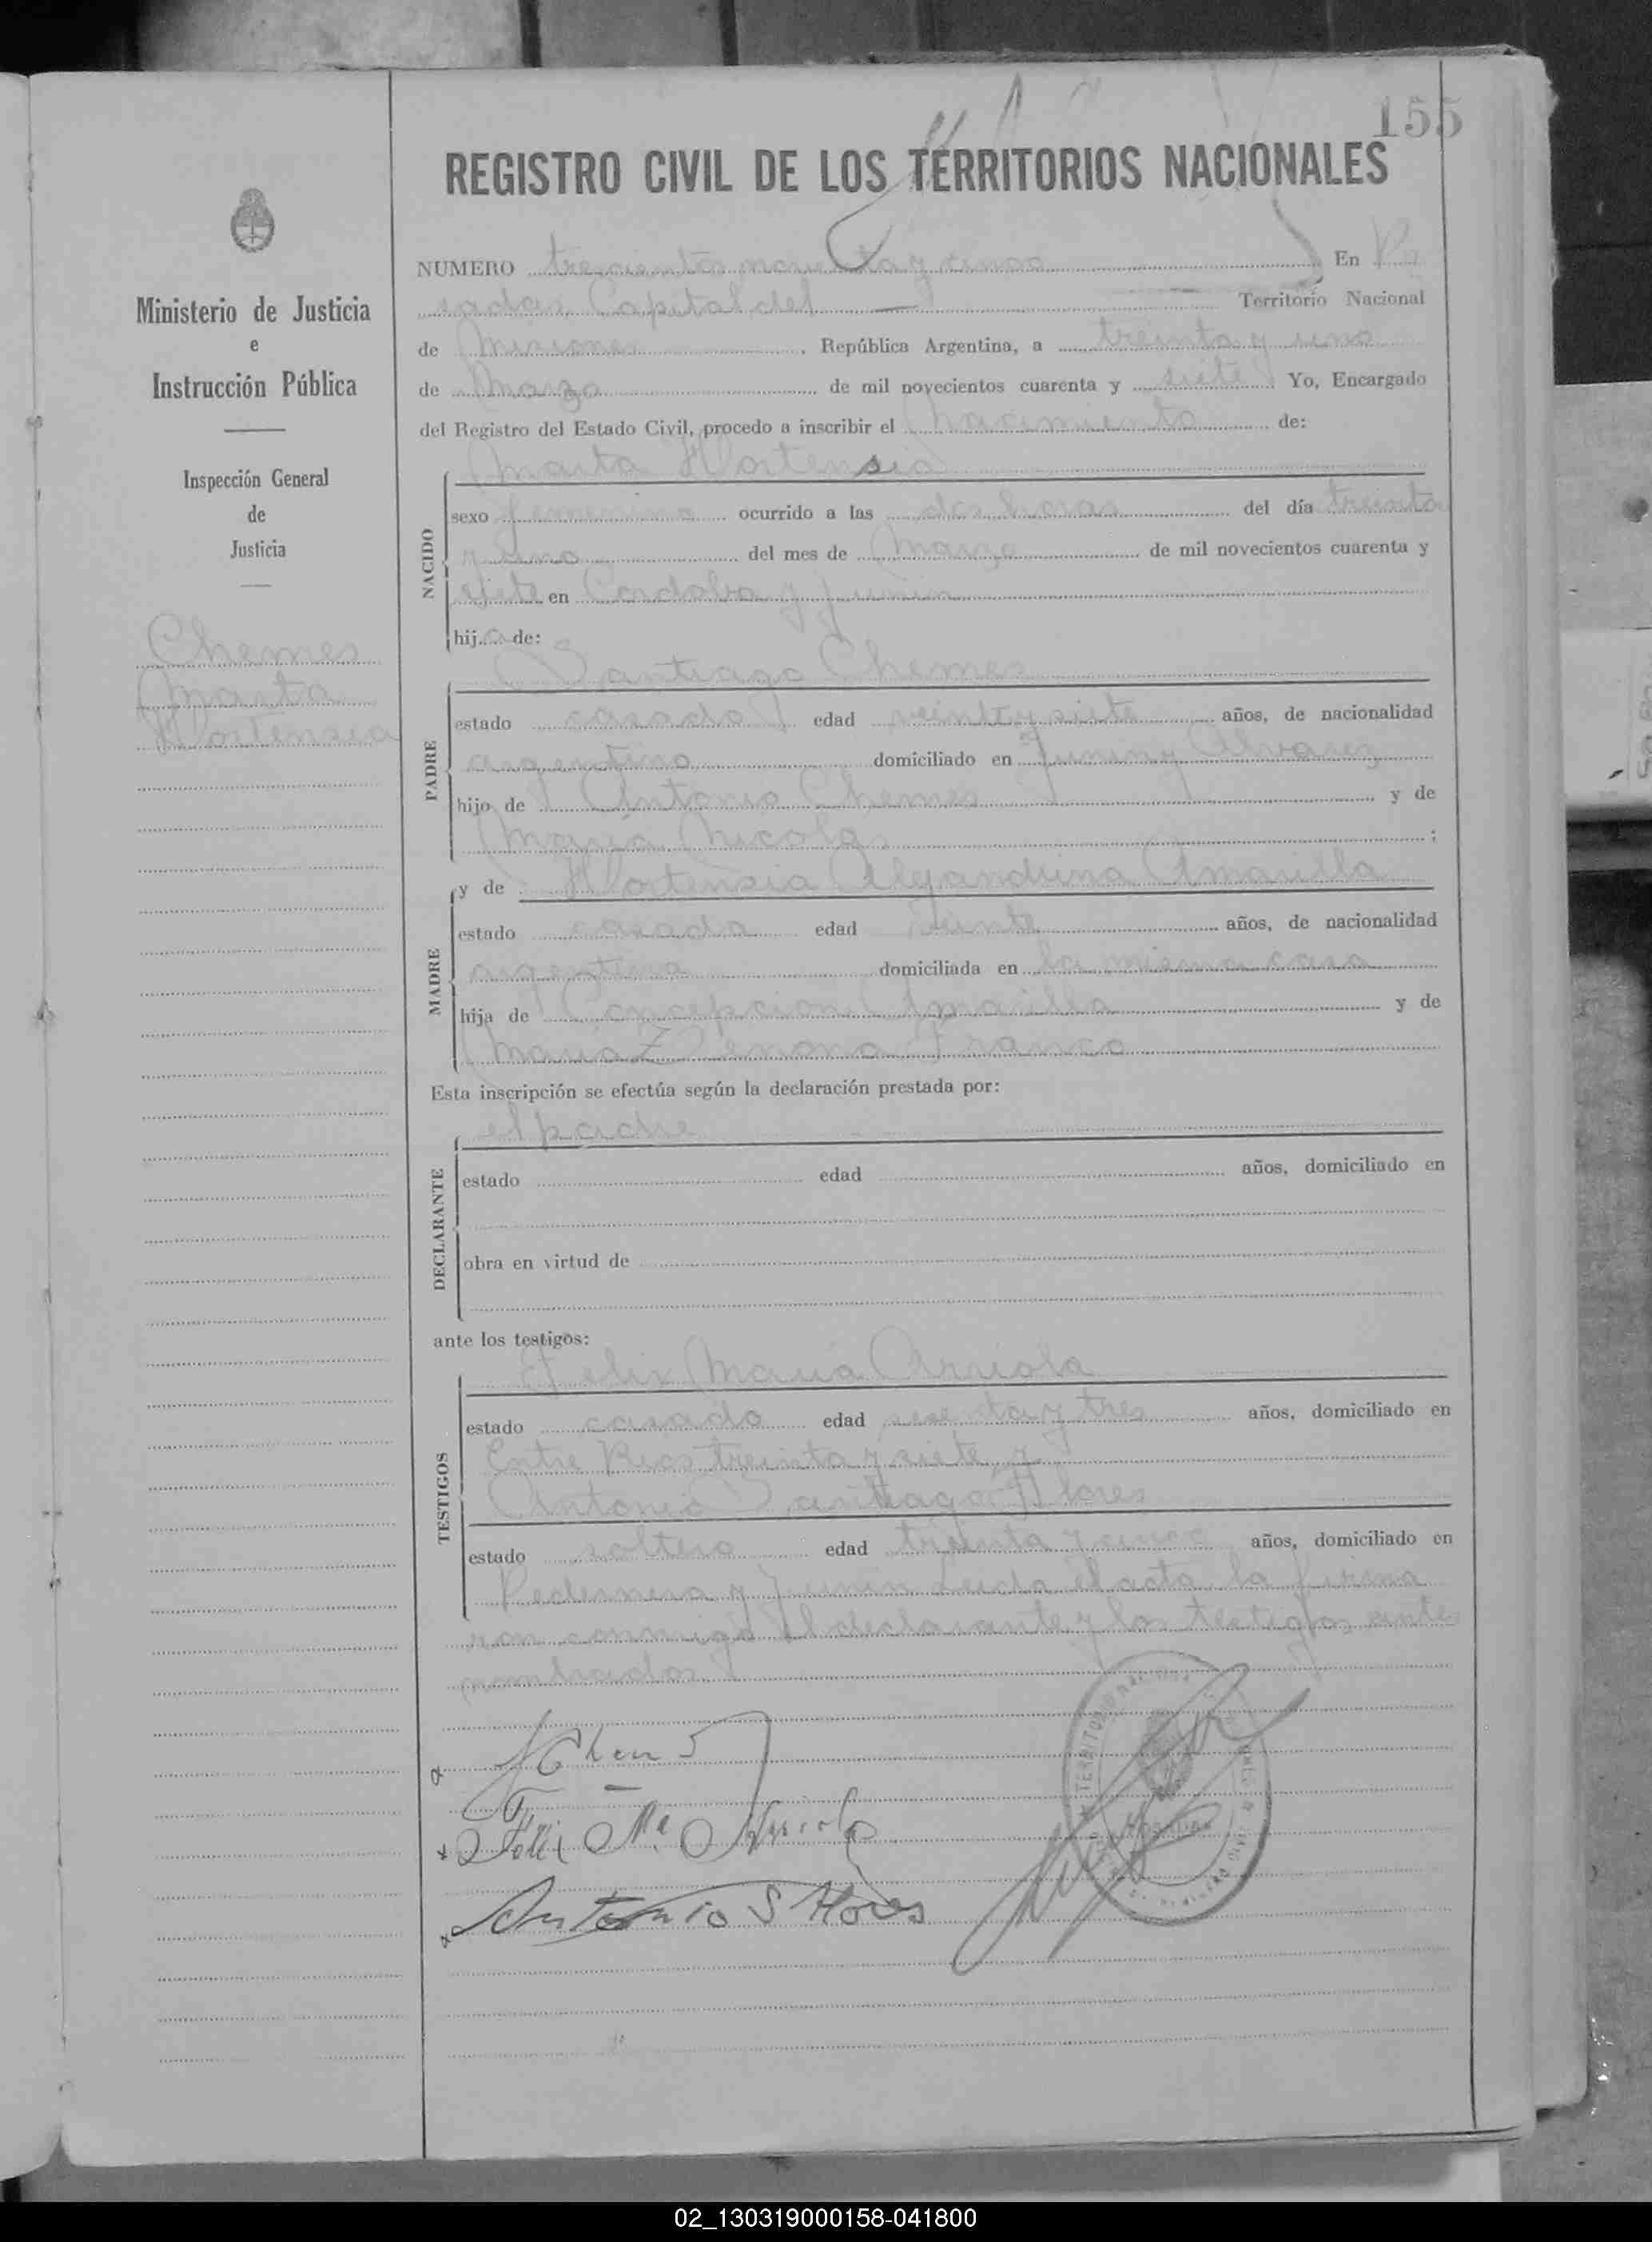 155
REGISTRO CIVIL DE LOS TERRITORIOS NACIONALES
Ministerio de Justicia
e
Instrucción Pública
Inspección General
de
Justicia
Chemes
Marta
Hortensia
NUMERO trescientos noventa y cinco En Po
sadas Capital del Territorio Nacional
de Misiones, República Argentina, a treinta y uno
de Marzo de mil novecientos cuarenta y siete Yo, Encargado
del Registro del Estado Civil, procedo a inscribir el nacimiento de:
Marta Hortensia
NACIDO
sexo femenino ocurrido a las dos horas del día treinta
y uno del mes de Marzo de mil novecientos cuarenta y
siete en Cordoba y Junin
hija de:
Santiago Chemes
PADRE
estado casado edad veinte y siete años, de nacionalidad
argentino domiciliado en Junin y Alvarez
hijo de Antonio Chemes y de
María Nicola ;
y de Hortensia Alejandrina Amarilla
MADRE
estado casada edad veinte años, de nacionalidad
argentina domiciliada en la misma casa
hija de Concepcion Amarilla y de
Maria Zenona Franco
Esta inscripción se efectúa según la declaración prestada por:
el padre
DECLARANTE
estado edad años, domiciliado en
obra en virtud de
ante los testigos:
Felix Maria Arriola
TESTIGOS
estado casado edad sesenta y tres años, domiciliado en
Entre Rios treinta y siete y
Antonio Santiago Flores
estado soltero edad treinta y cinco años, domiciliado en
Pedernera y Junin Leida el acta la firma
ron conmigo el declarante y los testigos ante
nombrados
Felix Ma Arriola
Antonio S Flores
02_130319000158-041800